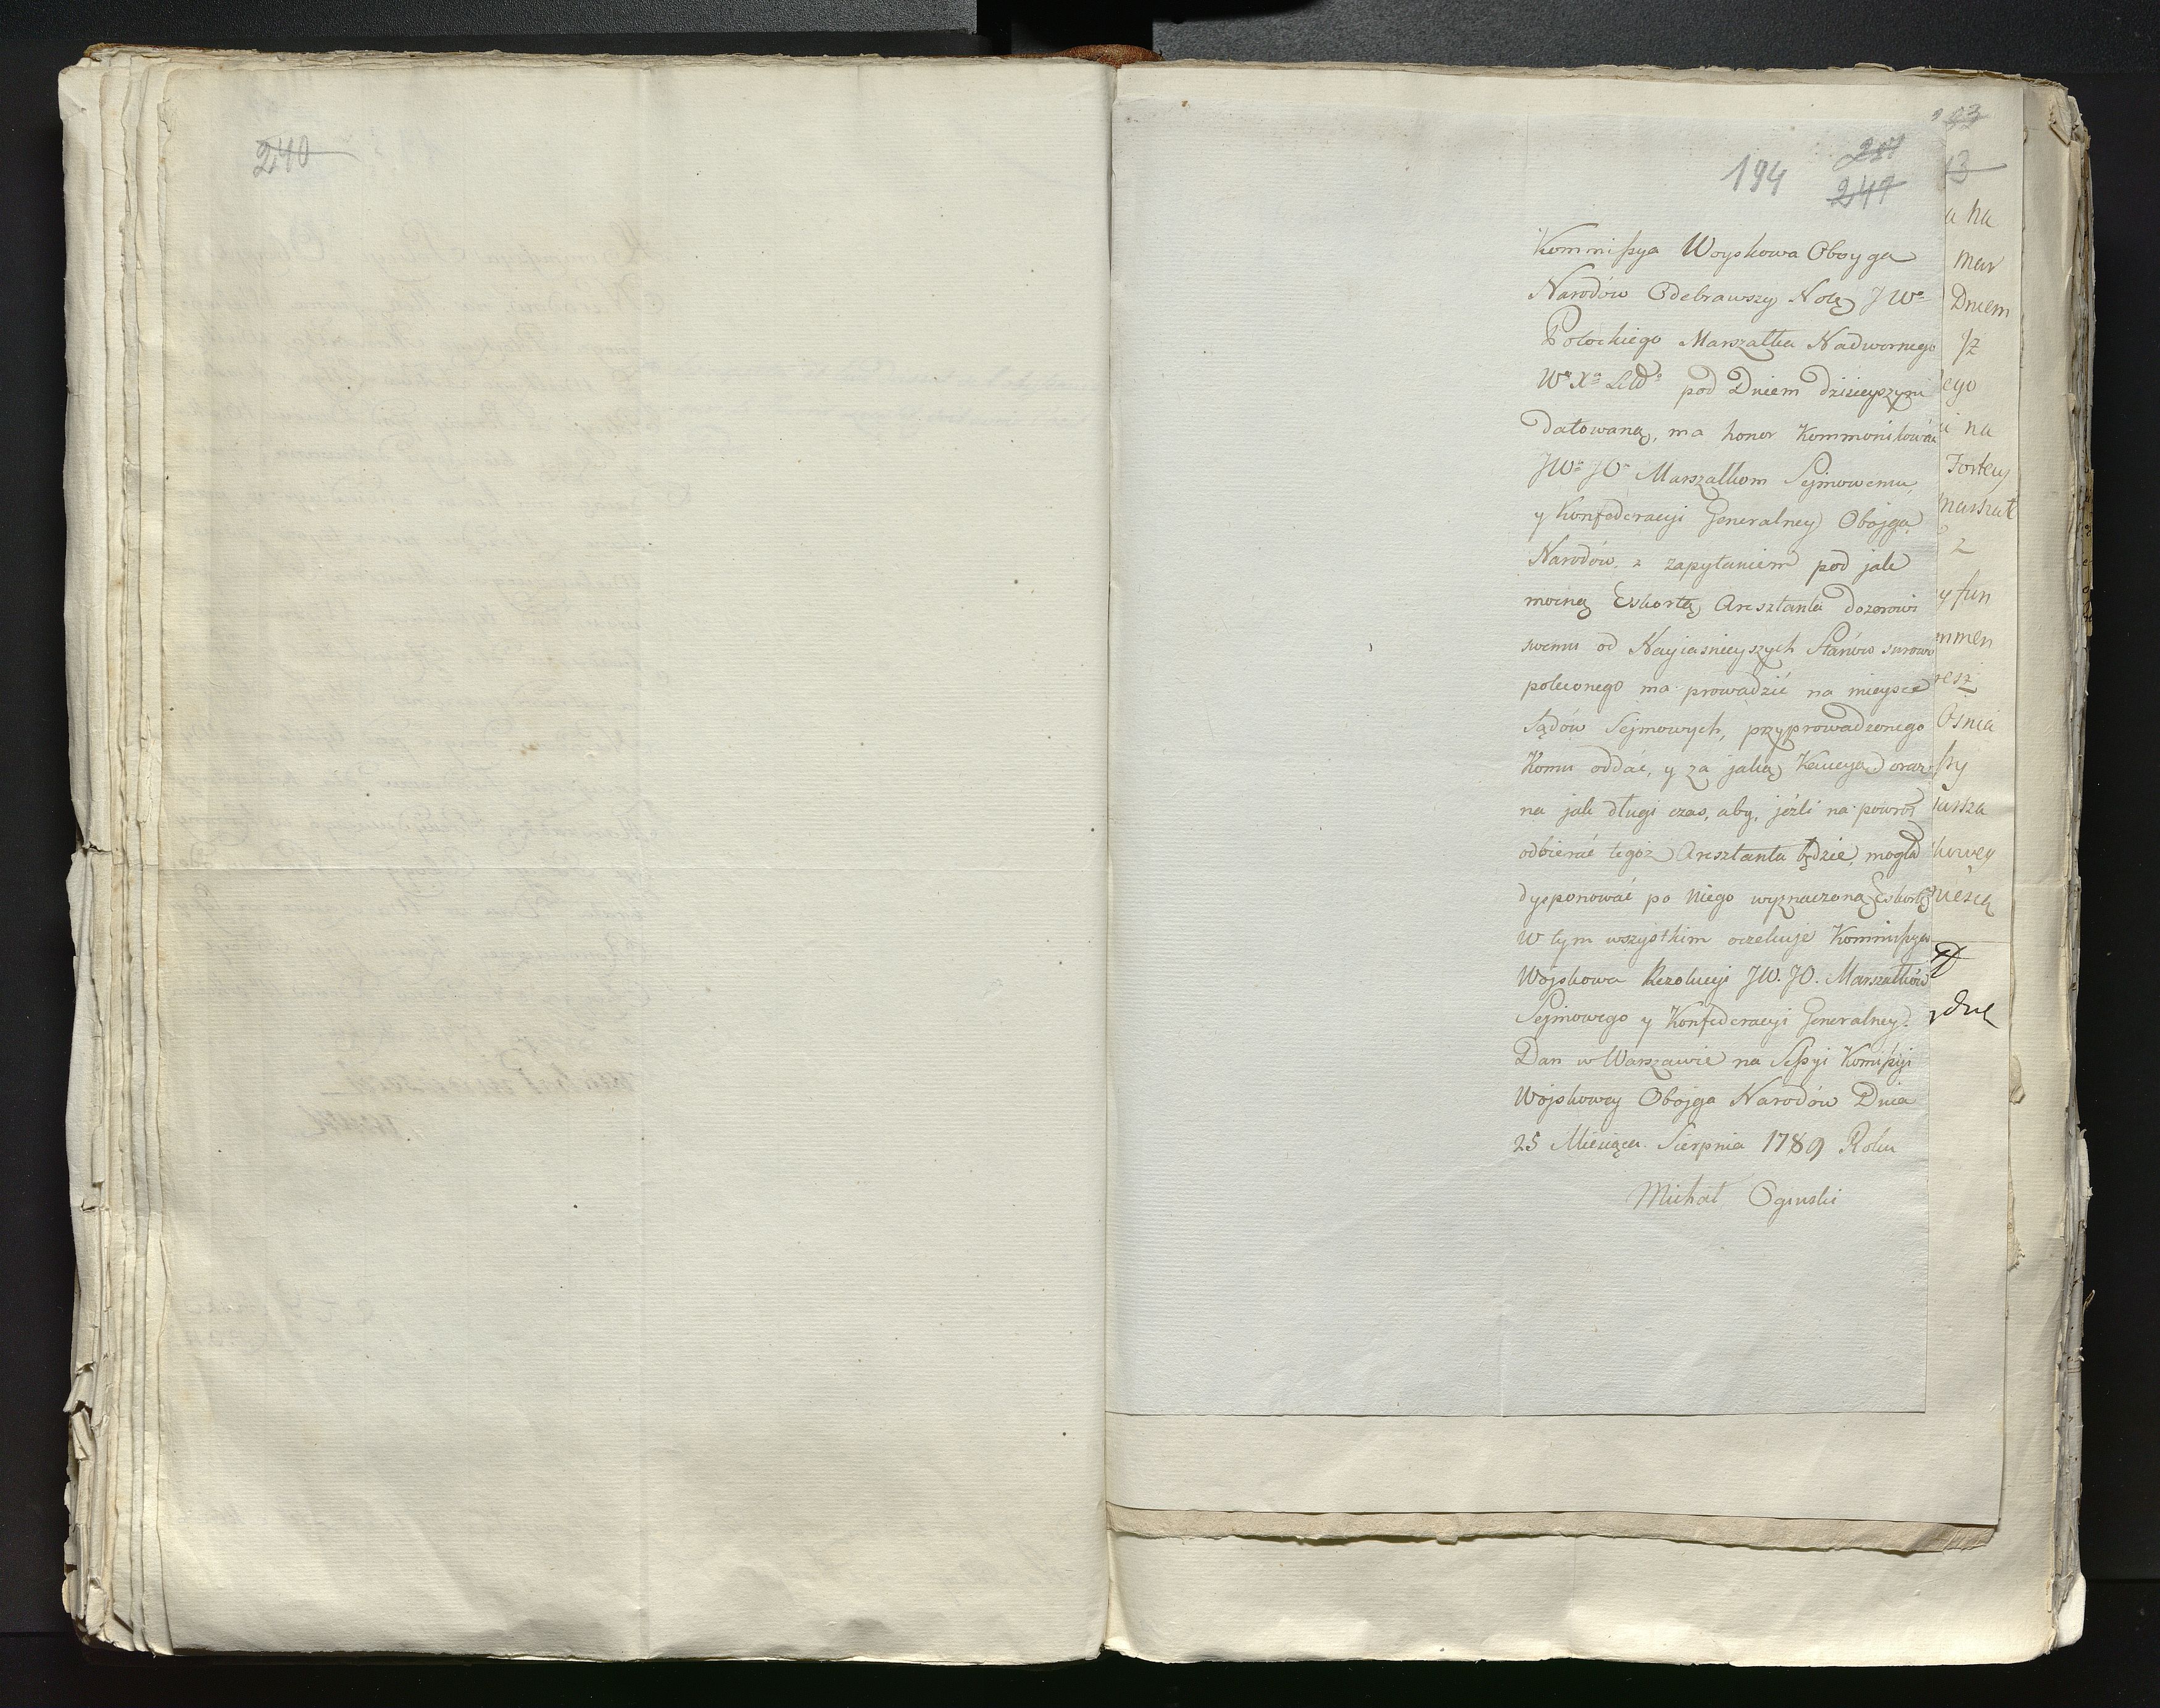 240
194
247
Kommissya Woyskowa Oboyga
Narodów Odebrawszy Notę J Wo
Potockiego Marszałka Nadwornego
Wo Xa Litto pod Dniem dzisieyszym
datowaną, ma honor Kommonikować
JWo JO Marszałkom Sejmowemu,
y Konfederacyi Generalney Obojga
Narodów, z zapytaniem pod jak
mocną Eskortą Aresztanta dozorowi
swemu od Nayiasnieyszych Stanów surowo
poleconego ma prowadzić na mieysce
Sądów Sejmowych, przyprowadzonego
Komu oddać, y za jaką Kaucyą, oraz
na jak długi czas, aby, jeźli na powrót
odbierać tegoż Aresztanta będzie, mogła
dysponować po niego wyznaczoną Eskortę
W tym wszystkim oczekuje Kommissya
Wojskowa Rezolucyi JW. JO. Marszałków
Sejmowego y Konfederacyi Generalney.
Dan w Warszawie na Sessyi Komissyi
Wojskowey Obojga Narodów Dnia
25 Miesiąca Sierpnia 1789 Roku
Michał Oginski
93
13
a na
mar
Dniem
Jż
ego
i na
Fortecy
marszałk
z
y fun
mmen
resz
Ośnia
ssy
arsza
kowey